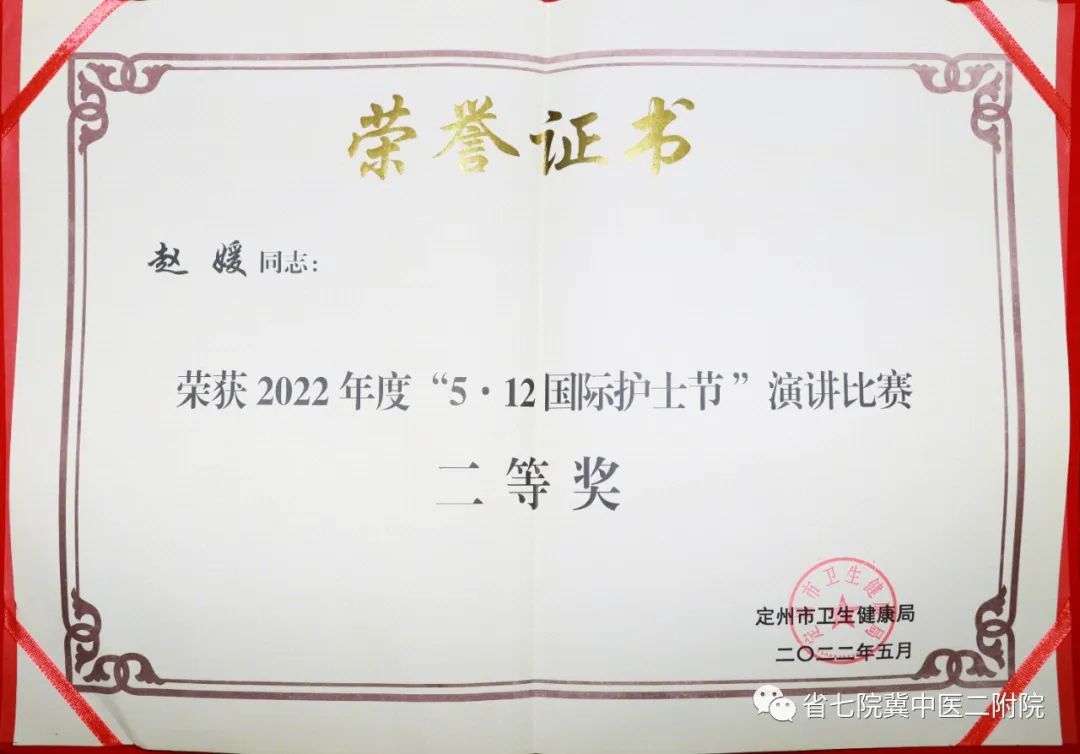 荣誉证书
赵媛同志：
荣获2022年度“5·12国际护士节”演讲比赛
二等奖
定州市卫生健康局
定州市卫生健康局
二〇二二年五月
省七院冀中医二附院